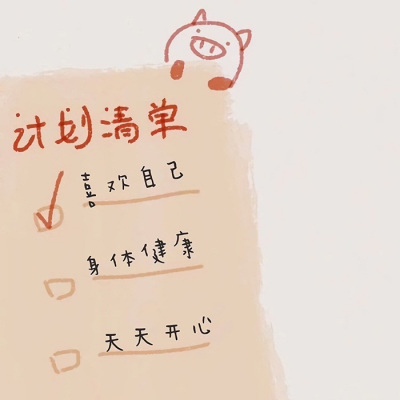 计划清单
喜欢自己
身体健康
天天开心